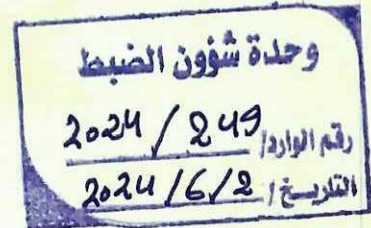 وحدة شؤون الضبط
رقم الوارد/ 249 / 2024
التاريخ / 2024/6/2